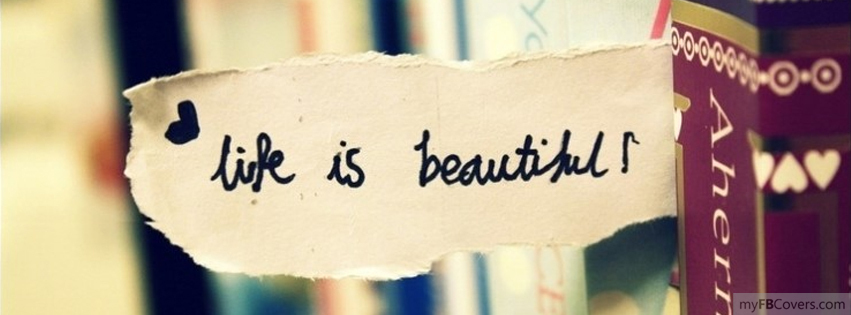 life is beautiful!
Ahern
myFBCovers.com